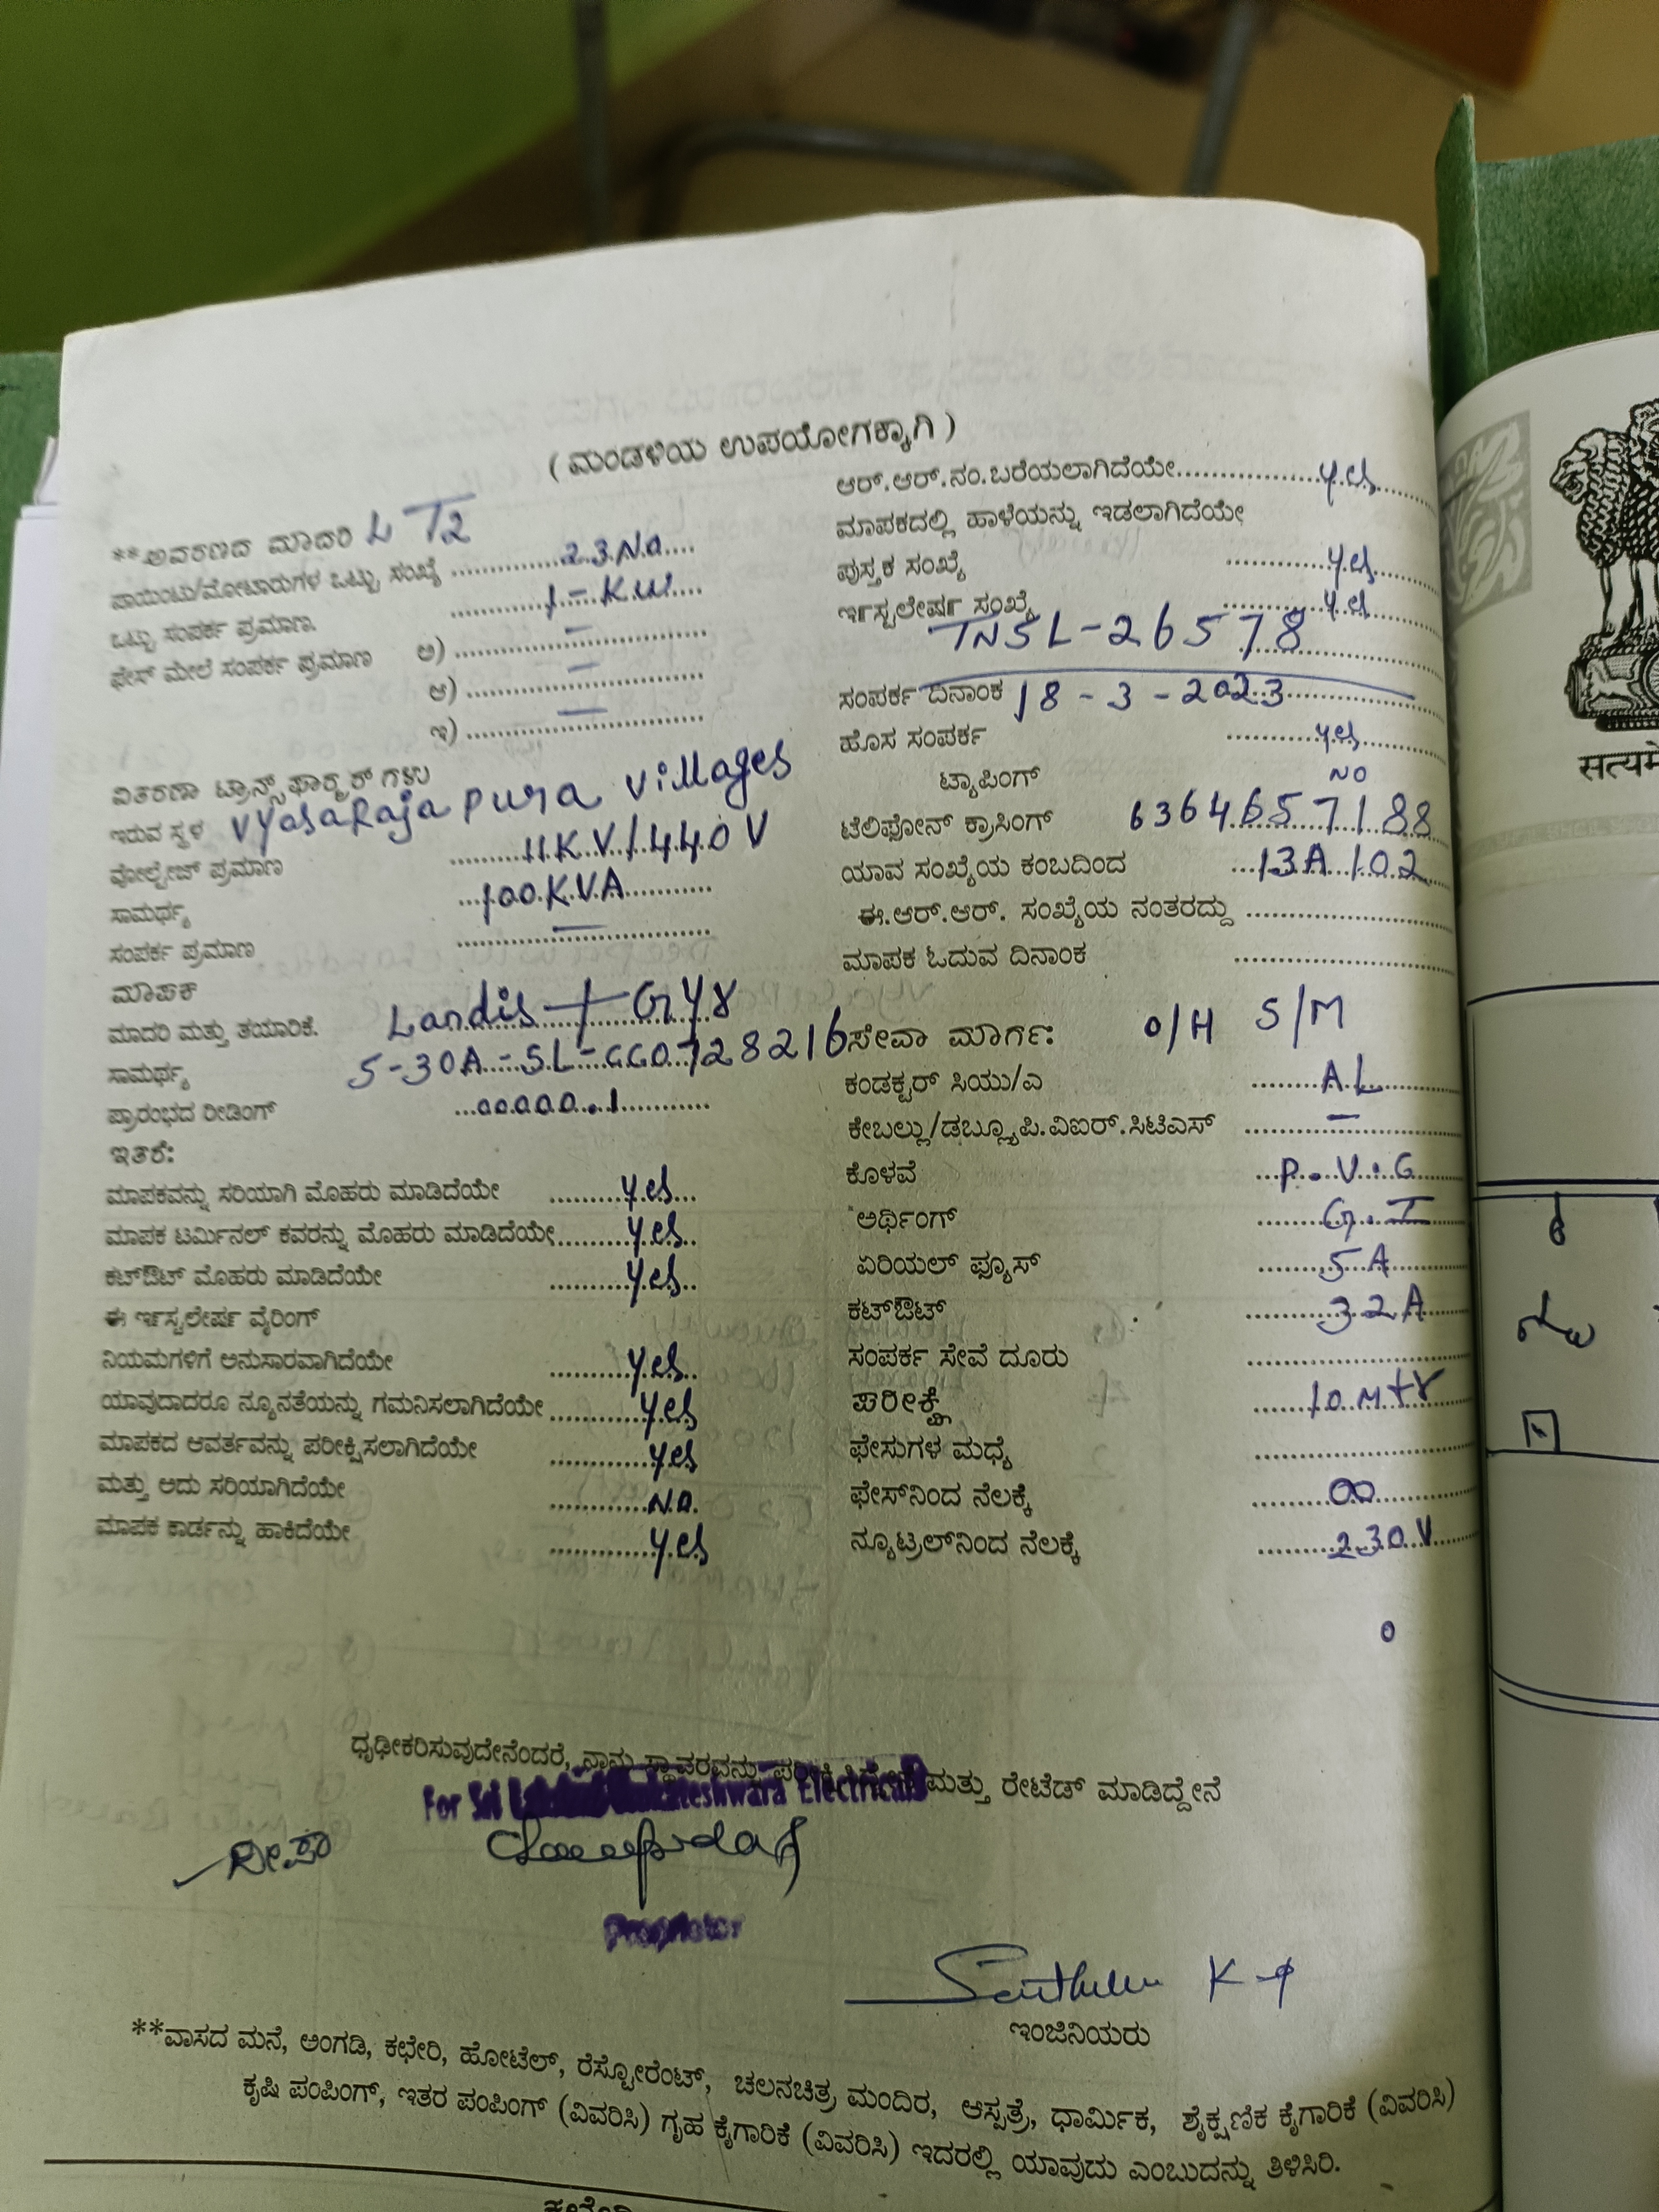 ( ಮಂಡಳಿಯ ಉಪಯೋಗಕ್ಕಾಗಿ )
**ಅವರಣದ ಮಾದರಿ LT2
ಪಾಯಿಂಟು/ಮೋಟಾರುಗಳ ಒಟ್ಟು ಸಂಖ್ಯೆ ............ 23.No....
ಒಟ್ಟು ಸಂಪರ್ಕ ಪ್ರಮಾಣ. ............ 1-KW....
ಫೇಸ್ ಮೇಲೆ ಸಂಪರ್ಕ ಪ್ರಮಾಣ ಅ) ............ –
ಆ) ............ –
ಇ) ............ –
ವಿತರಣಾ ಟ್ರಾನ್ಸ್‌ಫಾರ್‍ಮರ್ ಗಳು
ಇರುವ ಸ್ಥಳ VyasaRaja pura villages
ವೋಲ್ಟೇಜ್ ಪ್ರಮಾಣ ............ 11KV/440V
ಸಾಮರ್ಥ್ಯ ............ 100KVA
ಸಂಪರ್ಕ ಪ್ರಮಾಣ ............ –
ಮಾಪಕ
ಮಾದರಿ ಮತ್ತು ತಯಾರಿಕೆ. Landis + Gyr
ಸಾಮರ್ಥ್ಯ 5-30A-SL-CC0728216
ಪ್ರಾರಂಭದ ರೀಡಿಂಗ್ ...00000.1............
ಇತರೆ:
ಮಾಪಕವನ್ನು ಸರಿಯಾಗಿ ಮೊಹರು ಮಾಡಿದೆಯೇ ..........yes...
ಮಾಪಕ ಟರ್ಮಿನಲ್ ಕವರನ್ನು ಮೊಹರು ಮಾಡಿದೆಯೇ..........yes..
ಕಟ್‌ಔಟ್ ಮೊಹರು ಮಾಡಿದೆಯೇ ..........yes..
ಈ ಇನ್‌ಸ್ಟಲೇಷನ್ ವೈರಿಂಗ್
ನಿಯಮಗಳಿಗೆ ಅನುಸಾರವಾಗಿದೆಯೇ ..........yes..
ಯಾವುದಾದರೂ ನ್ಯೂನತೆಯನ್ನು ಗಮನಿಸಲಾಗಿದೆಯೇ..........yes
ಮಾಪಕದ ಆವರ್ತವನ್ನು ಪರೀಕ್ಷಿಸಲಾಗಿದೆಯೇ ..........yes
ಮತ್ತು ಅದು ಸರಿಯಾಗಿದೆಯೇ ..........No.
ಮಾಪಕ ಕಾರ್ಡನ್ನು ಹಾಕಿದೆಯೇ ..........yes
ಆರ್.ಆರ್.ನಂ.ಬರೆಯಲಾಗಿದೆಯೇ............yes
ಮಾಪಕದಲ್ಲಿ ಹಾಳೆಯನ್ನು ಇಡಲಾಗಿದೆಯೇ
ಪುಸ್ತಕ ಸಂಖ್ಯೆ ............yes
ಇನ್‌ಸ್ಟಲೇಷನ್ ಸಂಖ್ಯೆ ............yes
TNSL-26578
ಸಂಪರ್ಕ ದಿನಾಂಕ 18-3-2023
ಹೊಸ ಸಂಪರ್ಕ ............yes
ಟ್ಯಾಪಿಂಗ್ NO
ಟೆಲಿಫೋನ್ ಕ್ರಾಸಿಂಗ್ 6364657188
ಯಾವ ಸಂಖ್ಯೆಯ ಕಂಬದಿಂದ ...13A102
ಈ.ಆರ್.ಆರ್. ಸಂಖ್ಯೆಯ ನಂತರದ್ದು ............
ಮಾಪಕ ಓದುವ ದಿನಾಂಕ ............
ಸೇವಾ ಮಾರ್ಗ: O/H S/M
ಕಂಡಕ್ಟರ್ ಸಿಯು/ಎ ..........AL
ಕೇಬಲ್ಲು/ಡಬ್ಲ್ಯೂಪಿ.ವಿಐರ್.ಸಿಟಿಎಸ್ .......... –
ಕೊಳವೆ ...P.V.C
ಅರ್ಥಿಂಗ್ ..........G.I
ಏರಿಯಲ್ ಫ್ಯೂಸ್ ..........5A
ಕಟ್‌ಔಟ್ ..........32A
ಸಂಪರ್ಕ ಸೇವೆ ದೂರು ............
ಪರೀಕ್ಷೆ ..........10 Mtr
ಫೇಸುಗಳ ಮಧ್ಯೆ ............
ಫೇಸ್‌ನಿಂದ ನೆಲಕ್ಕೆ ..........∞
ನ್ಯೂಟ್ರಲ್‌ನಿಂದ ನೆಲಕ್ಕೆ ..........230V
0
ಧೃಢೀಕರಿಸುವುದೇನೆಂದರೆ, ನಾನು ಸ್ಥಾವರವನ್ನು ಮತ್ತು ರೇಟೆಡ್ ಮಾಡಿದ್ದೇನೆ
For Sri Electricals
ದೀಪಾ
Proprietor
ಇಂಜಿನಿಯರು
**ವಾಸದ ಮನೆ, ಅಂಗಡಿ, ಕಛೇರಿ, ಹೋಟೆಲ್, ರೆಸ್ಟೋರೆಂಟ್, ಚಲನಚಿತ್ರ ಮಂದಿರ, ಆಸ್ಪತ್ರೆ, ಧಾರ್ಮಿಕ, ಶೈಕ್ಷಣಿಕ ಕೈಗಾರಿಕೆ (ವಿವರಿಸಿ)
ಕೃಷಿ ಪಂಪಿಂಗ್, ಇತರ ಪಂಪಿಂಗ್ (ವಿವರಿಸಿ) ಗೃಹ ಕೈಗಾರಿಕೆ (ವಿವರಿಸಿ) ಇದರಲ್ಲಿ ಯಾವುದು ಎಂಬುದನ್ನು ತಿಳಿಸಿರಿ.